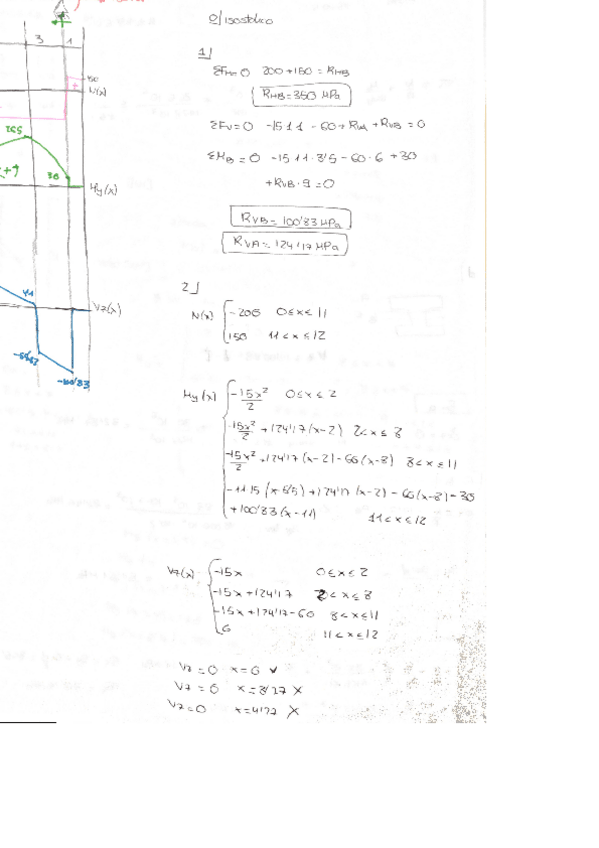 0/isostático
1)
ΣFH=0 200+150 = RHB
RHB=350 MPa
ΣFV=0 -15·11 - 60 + RVA + RVB = 0
ΣMB=0 -15·11·3'5 - 60·6 + 30
+RVB·9=0
RVB=100'83 MPa
RVA=124'17 MPa
2)
N(x) { -200 0≤x≤11
150 11<x≤12
My(x) { -15x²/2 0≤x≤2
-15x²/2 + 124'17(x-2) 2<x≤8
-15x²/2 + 124'17(x-2) - 60(x-8) 8<x≤11
-11·15(x-5'5) + 124'17(x-2) - 60(x-8) - 30
+100'83(x-11) 11<x≤12
Vz(x) { -15x 0≤x≤2
-15x+124'17 2<x≤8
-15x+124'17-60 8<x≤11
0 11<x≤12
Vz=0 x=0 ✓
Vz=0 x=8'27 X
Vz=0 x=4'27 X
3 1
150
+
N(x)
30
My(x)
Vz(x)
-100'83